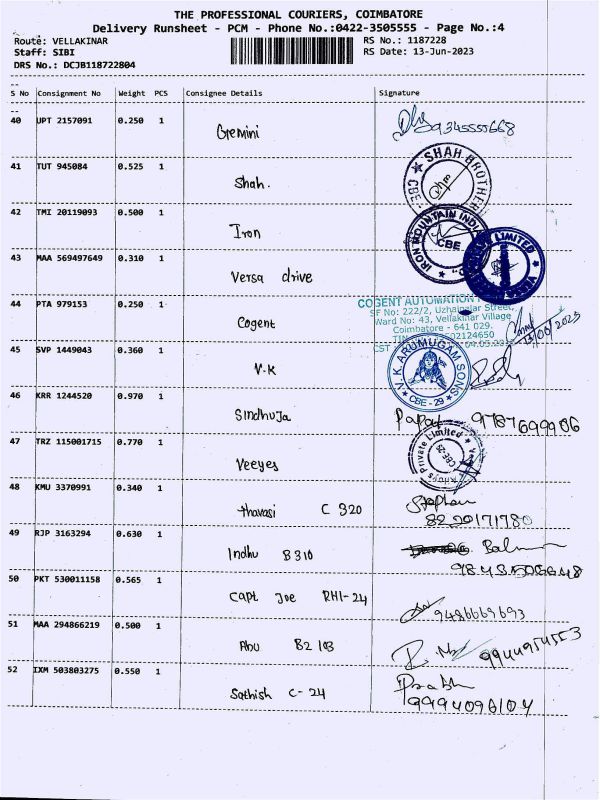 THE PROFESSIONAL COURIERS, COIMBATORE
Delivery Runsheet - PCM - Phone No.:0422-3505555 - Page No.:4
Route: VELLAKINAR
RS No.: 1187228
Staff: SIBI
RS Date: 13-Jun-2023
DRS No.: DCJB118722804
S No Consignment No Weight PCS Consignee Details Signature
40 UPT 2157091 0.250 1 Gremini 9345555668
41 TUT 945084 0.525 1 Shah.
SHAH BROTHER
CBE
42 TMI 20119093 0.500 1 Iron
IRON MOUNTAIN INDIA
CBE
43 MAA 569497649 0.310 1 Versa drive
LIMITED
44 PTA 979153 0.250 1 Cogent
COGENT AUTOMATION
SF No: 222/2, Uzhaipalar Street,
Ward No: 43, Vellakinar Village
Coimbatore - 641 029.
13/06/2023
45 SVP 1449043 0.360 1 V.K
V.K. ARUMUGAM SONS
CBE - 29
46 KRR 1244520 0.970 1 Sindhuja
47 TRZ 115001715 0.770 1 Veeyes
Private Limited
CBE-29
48 KMU 3370991 0.340 1 thavasi C 320 Stephen
8220171780
49 RJP 3163294 0.630 1 Indhu B 310
50 PKT 530011158 0.565 1 Capt Joe RHI-24 9486669693
51 MAA 294866219 0.500 1 Abu B2 103 9944954553
52 IXM 503803275 0.550 1 Sathish C-24 Prabh
9994096104